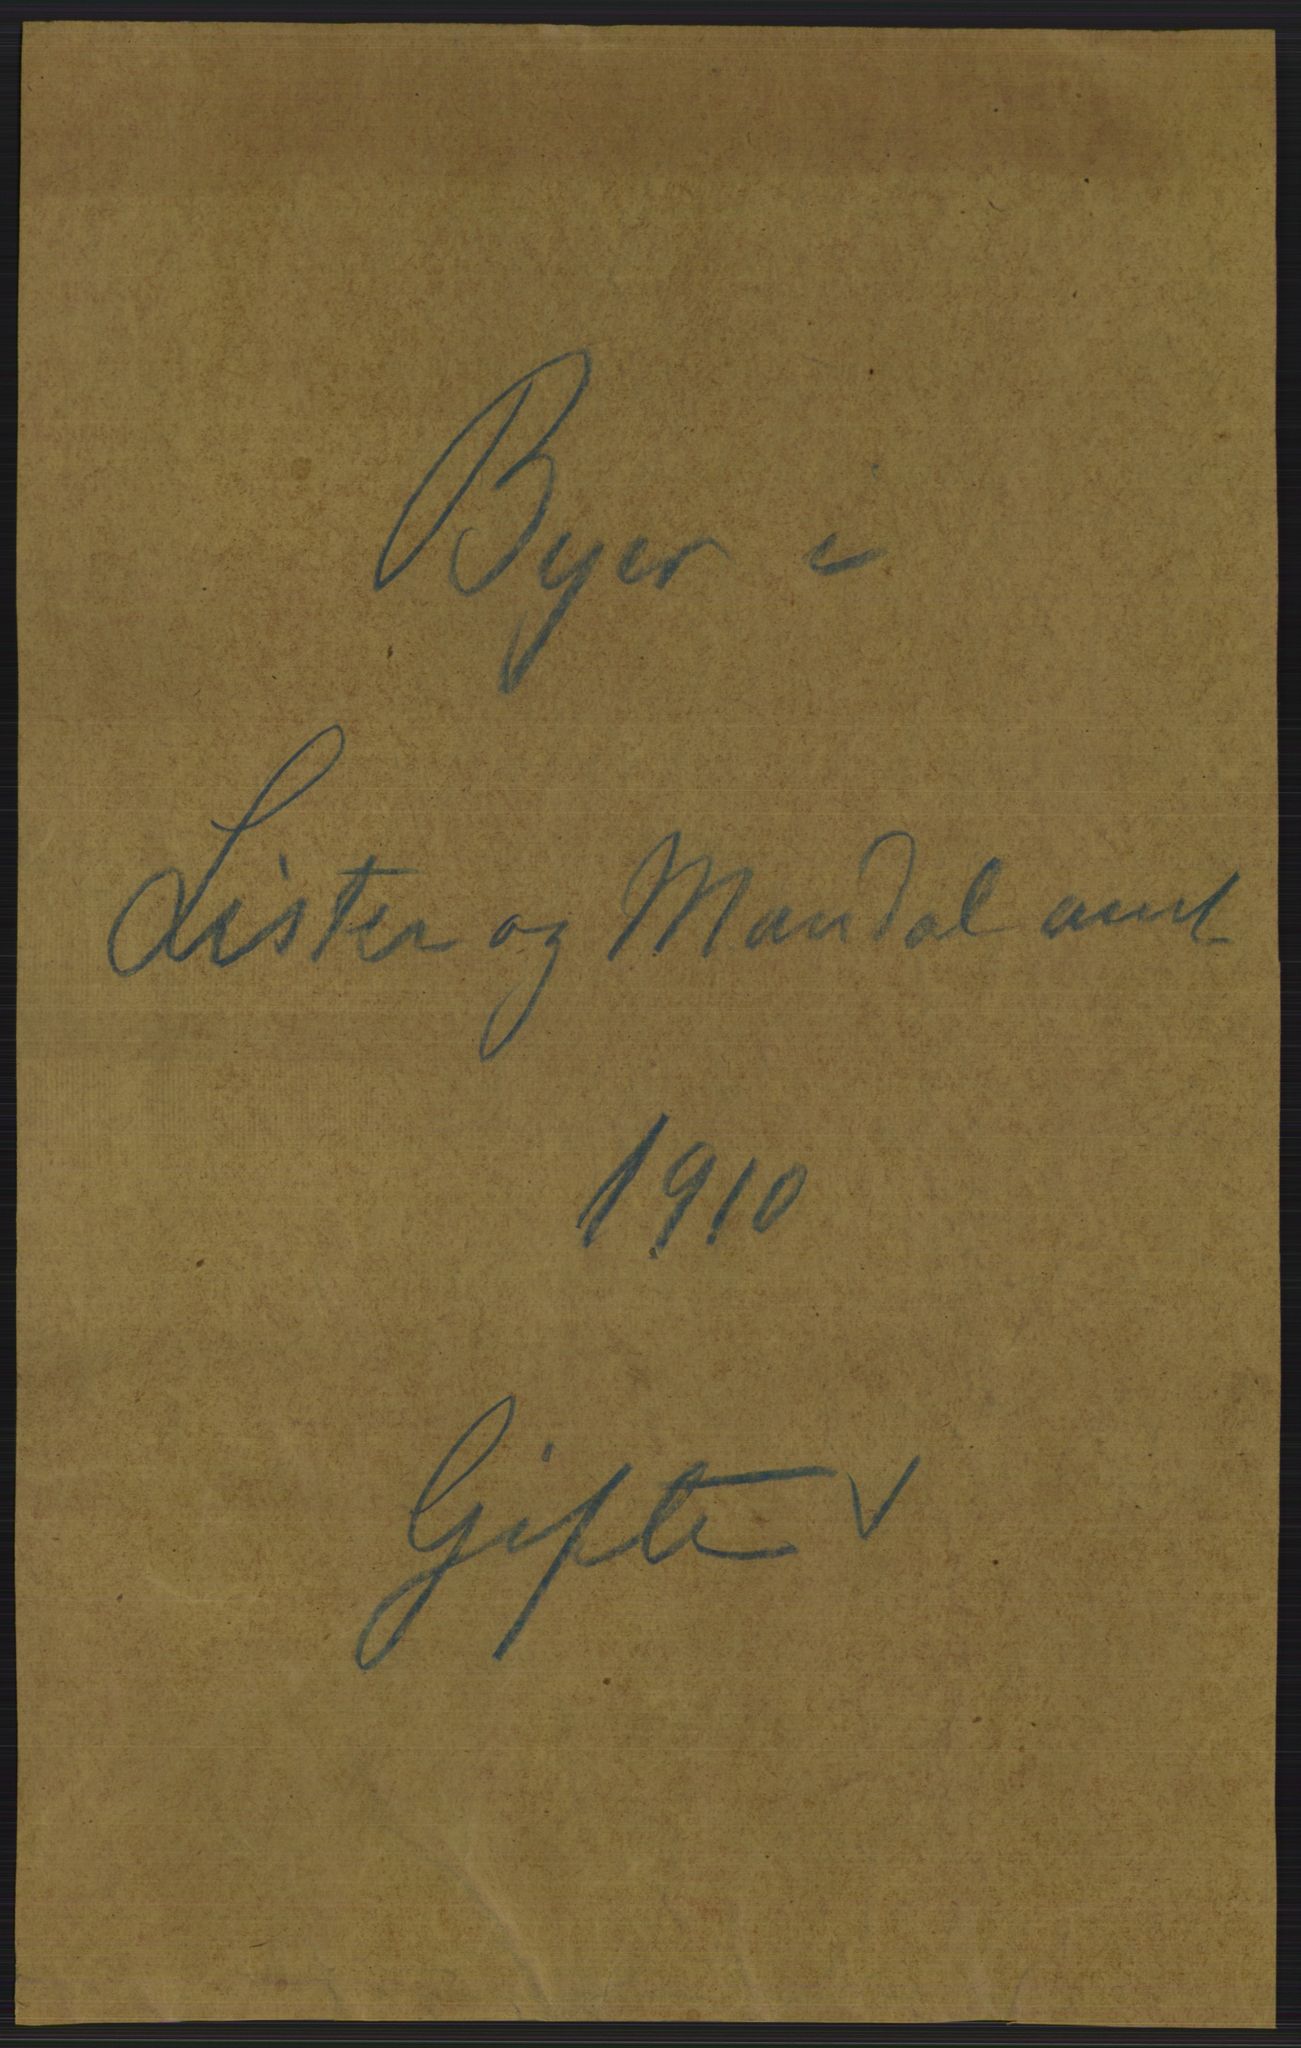 Byer i
Lister og Mandal amt
1910
Gifte ✓